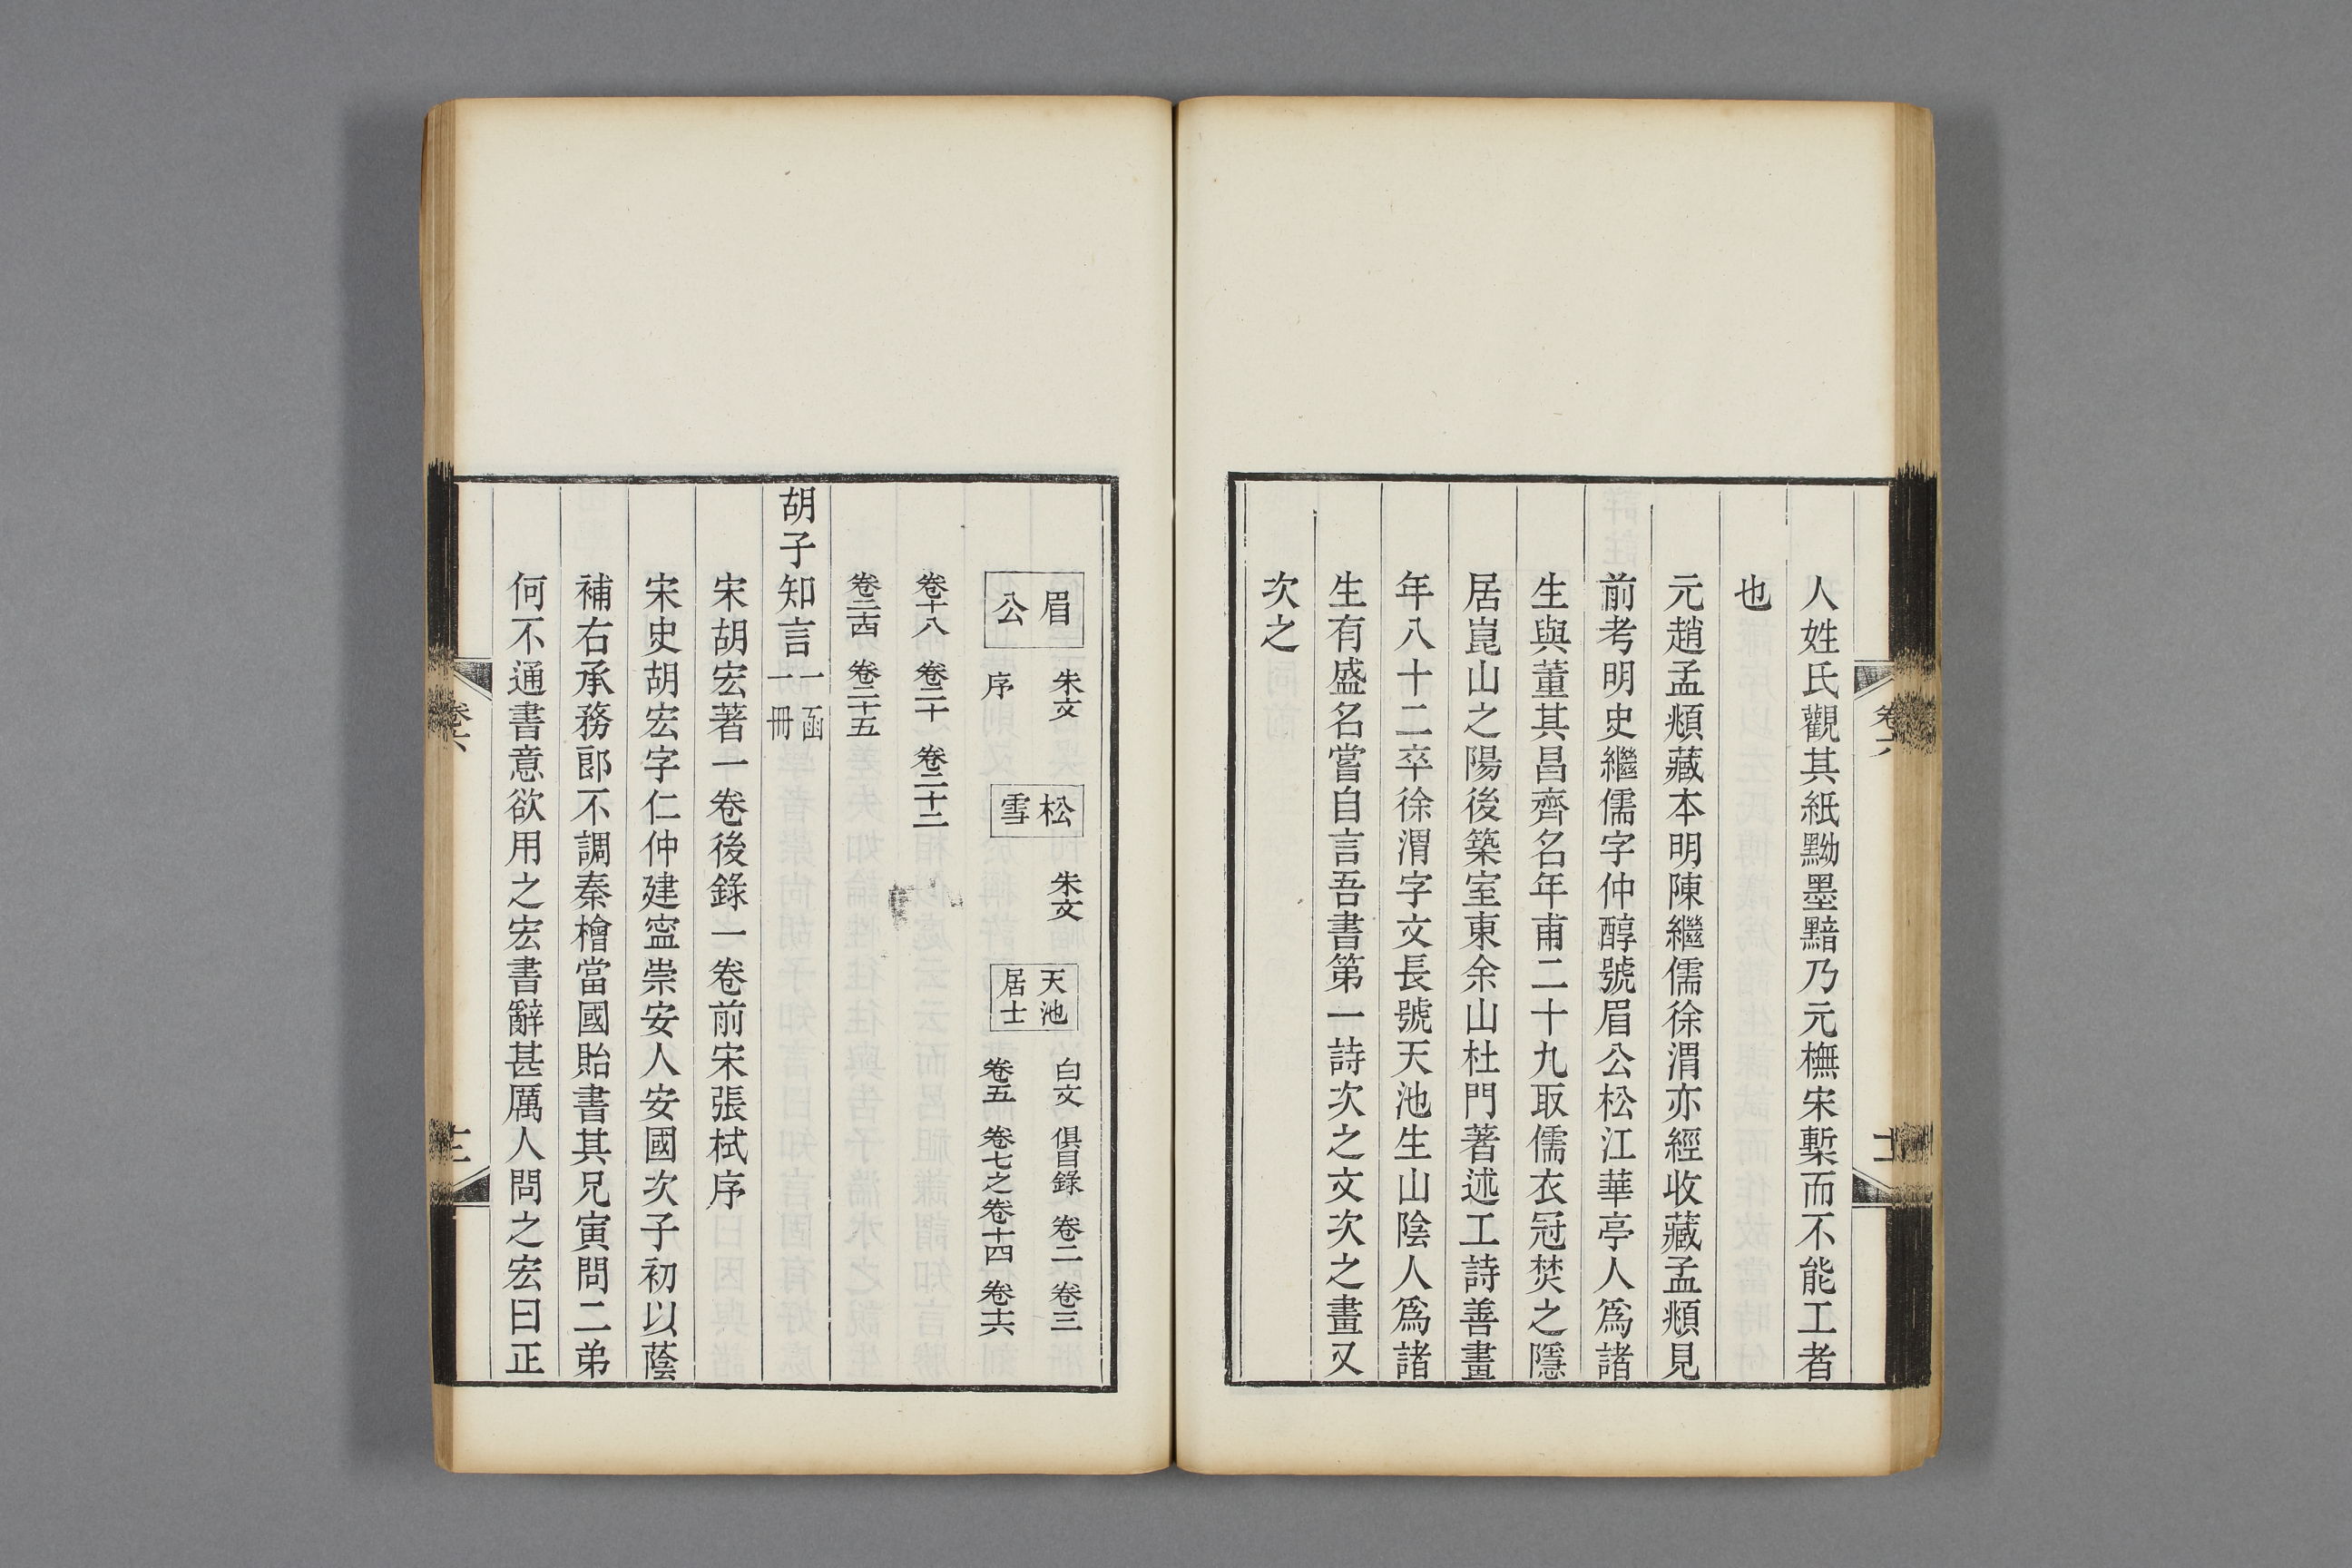 人姓氏觀其紙黝墨黯乃元橅宋槧而不能工者
也
元趙孟頫藏本明陳繼儒徐渭亦經收藏孟頫見
前考明史繼儒字仲醇號眉公松江華亭人爲諸
生與董其昌齊名年甫二十九取儒衣冠焚之隱
居崑山之陽後築室東佘山杜門著述工詩善畫
年八十二卒徐渭字文長號天池生山陰人爲諸
生有盛名嘗自言吾書第一詩次之文次之畫又
次之
眉公 朱文 序
松雪 朱文
天池居士 白文 俱目錄 卷二 卷三
卷五 卷七之卷十四 卷十六
卷十八 卷二十 卷二十二
卷二十四 卷二十五
胡子知言 一函一冊
宋胡宏著一卷後錄一卷前宋張栻序
宋史胡宏字仁仲建寍崇安人安國次子初以蔭
補右承務郎不調秦檜當國貽書其兄寅問二弟
何不通書意欲用之宏書辭甚厲人問之宏曰正
卷六